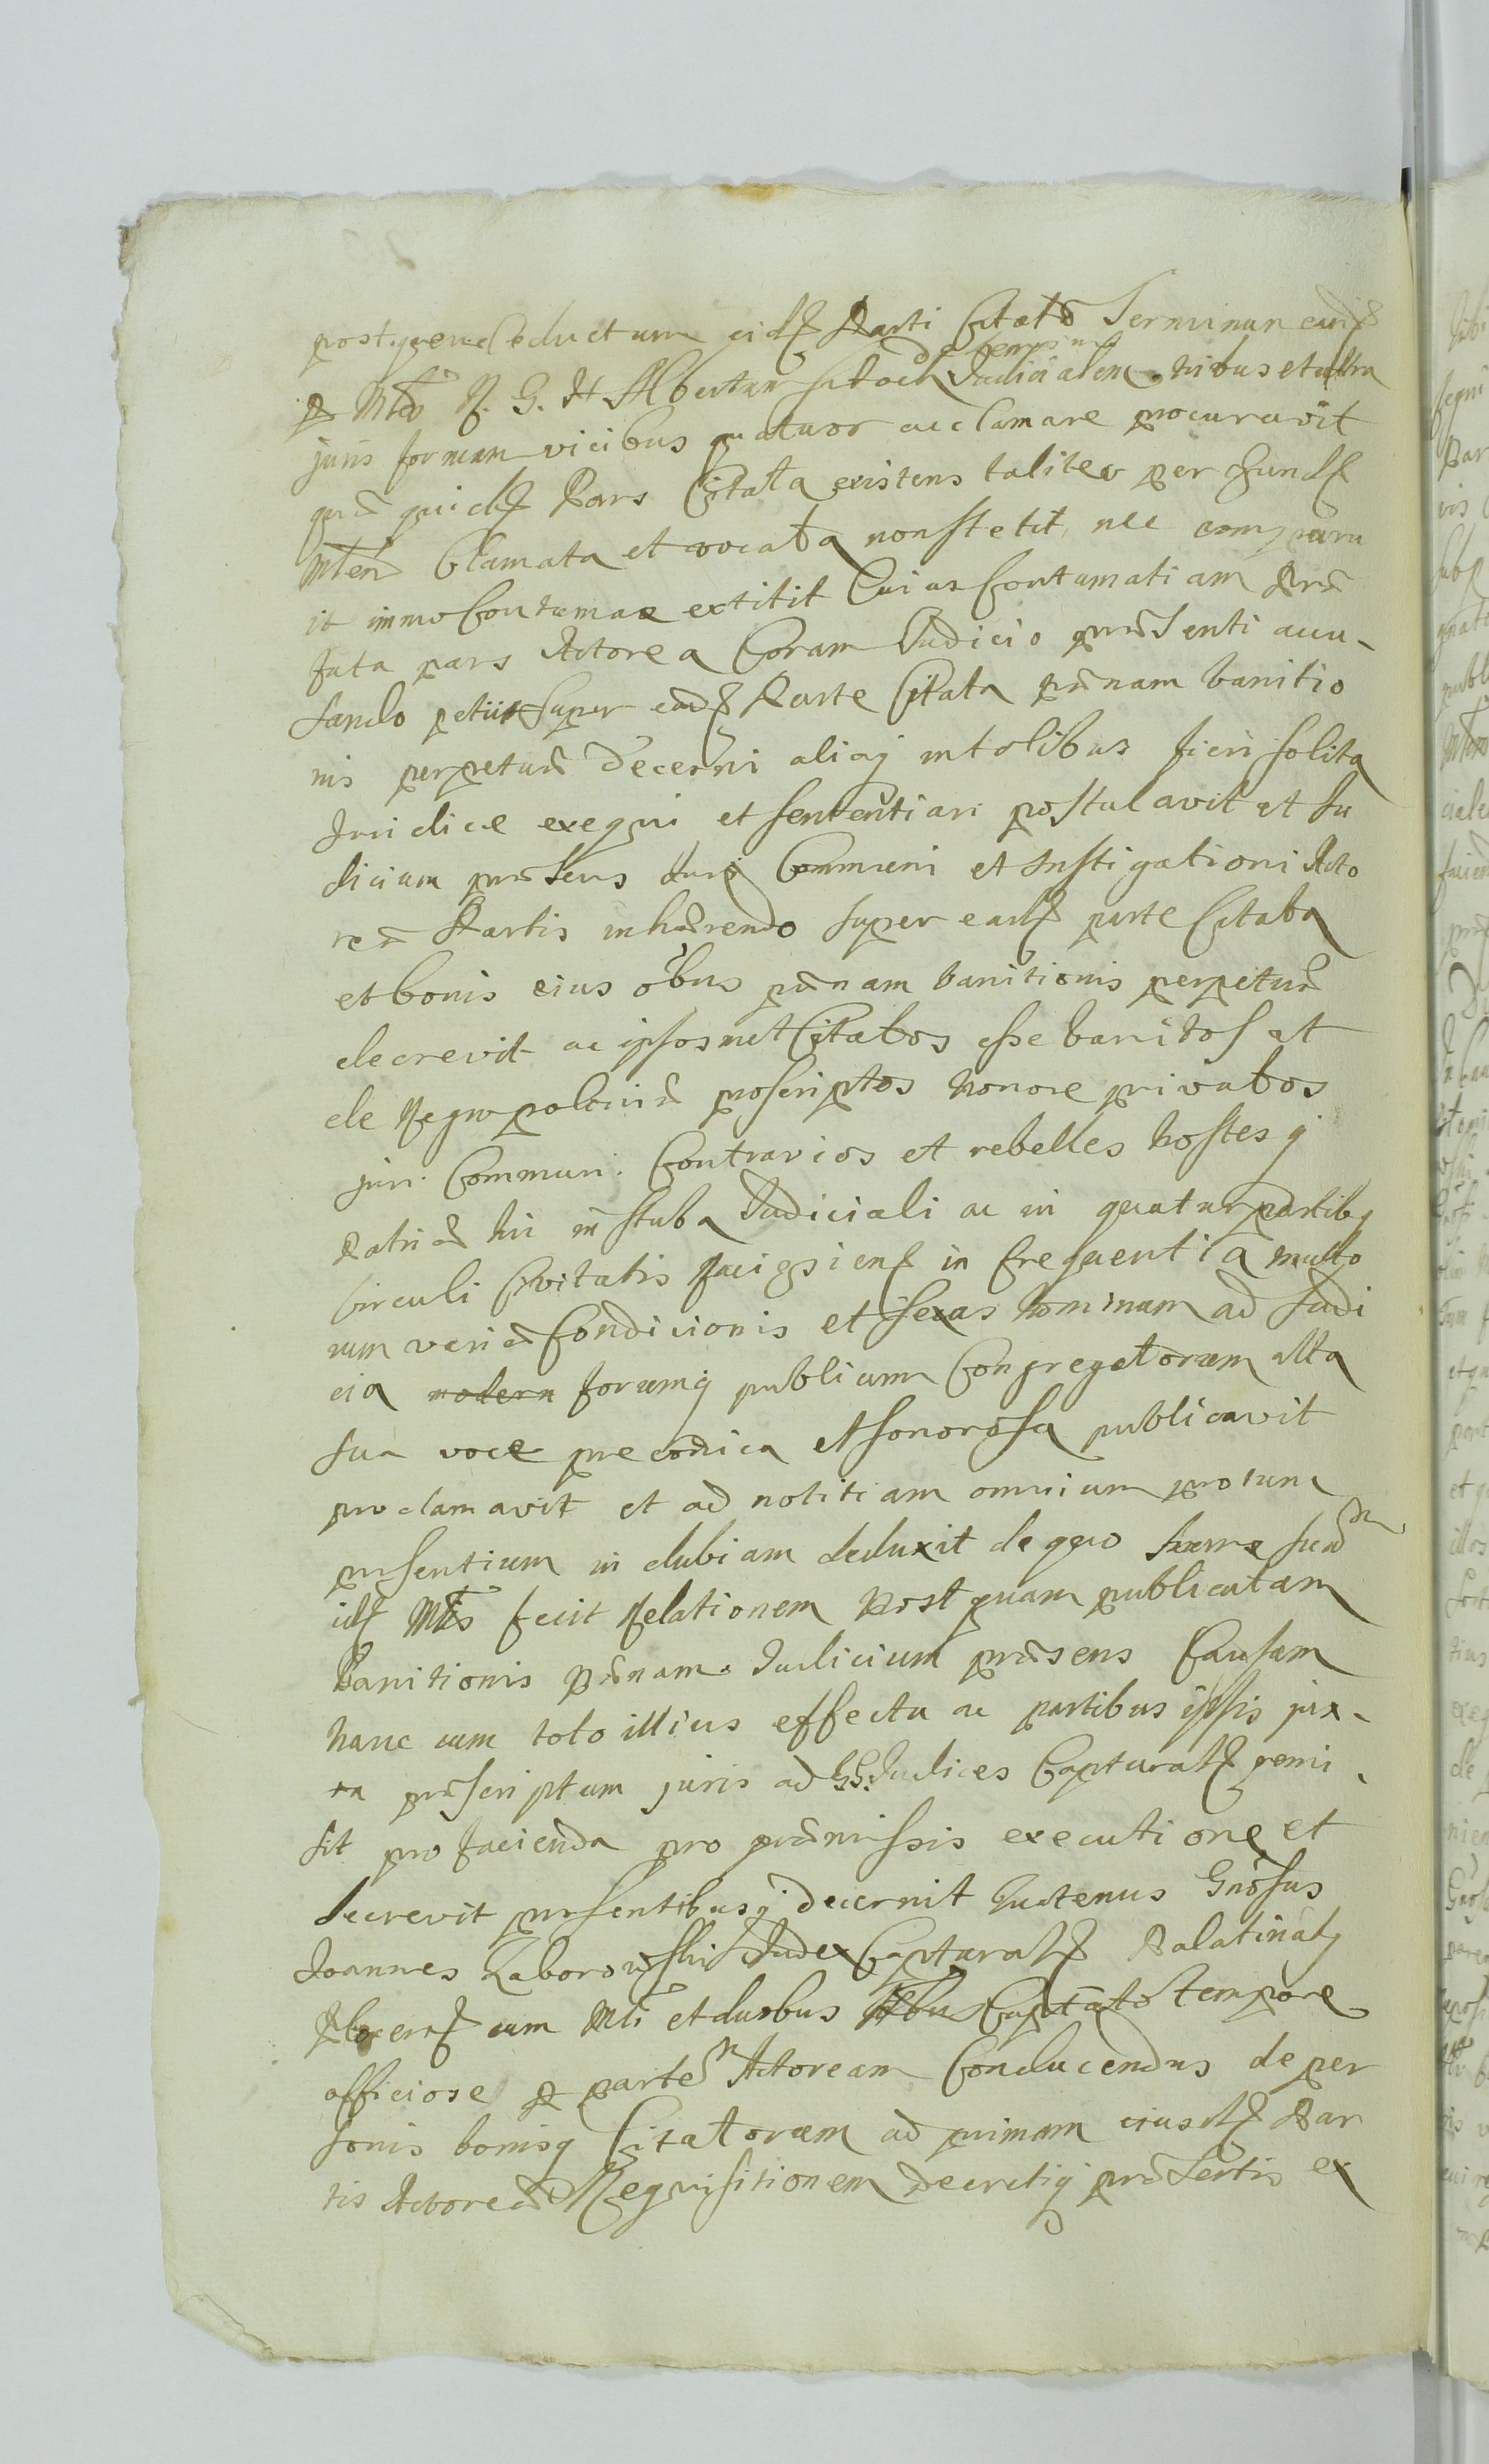 postquem deductum eidʒ Parti Citatæ Terminum eundʒ
p Mtem R. G. H Albertum Judicialem tribus et ultra
juris formam vicibus quatuor acclamare procuravit
quæ quidʒ Pars Citata existens taliter per eundʒ
Mtem Clamata et vocata non stetit, nec comparu
it immo Contumax extitit Cuius Contumatiam Præ
fata pars Actorea Coram Judicio præsenti accu-
sando petiit super eadʒ Parte Citata pænam banitio
nis perpetuæ decerni aliaq in talibus fieri solita
Juridice exequi et sententiari postulavit et Ju
dicium præsens Juri Communi et Instigationi Acto
reæ Partis inhærendo super eadʒ parte Citata
et bonis eius oĩbus pænam banitionis perpetuæ
decrevit ac ipsosmet Citatos esse banitos et
de Regno poloniæ proscriptos honore privatos
juri Communi Contrarios et rebelles hostesq
Patriæ hic in stuba Judiciali ac in quatuor partibq
Circuli Civitatis in frequentia multo
rum variæ Condicionis et sexus hominum ad Judi
cia modern forumq publicum Congregatorum alta
sua voce preconica et sonorosa publicavit
proclamavit et ad notitiam omnium protunc
prsentium in dubiam deduxit de quo
idʒ Mtis fecit Relationem Post quam publicatam
Banitionis pænam Judicium præsens Causam
hanc cum toto illius effectu ac partibus ipsis jux-
ta præscriptum juris ad GG: Judices Capturalʒ remi
sit pro facienda pro præmissis executione et
decrevit prsentibusq decernit Quatenus Gnõsus
Joannes Zaborowski Judex Capturalʒ Palatinatq
Plocenʒ cum Mti et duobus Nobilibus Captato tempore
officiose p partem Actoream Conducendus de per
sonis bonisq Citatorum ad primam eiusdʒ Par
tis Actoreæ Requisitionem decretiq præsertis ex